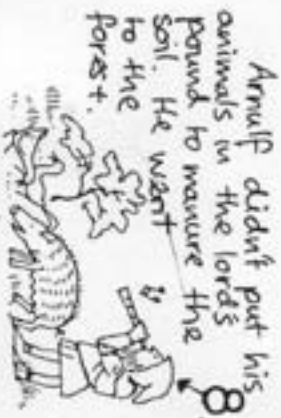 8
Arnulf didn't put his
animals in the lord's
pound to manure the
soil. He went
to the
forest.